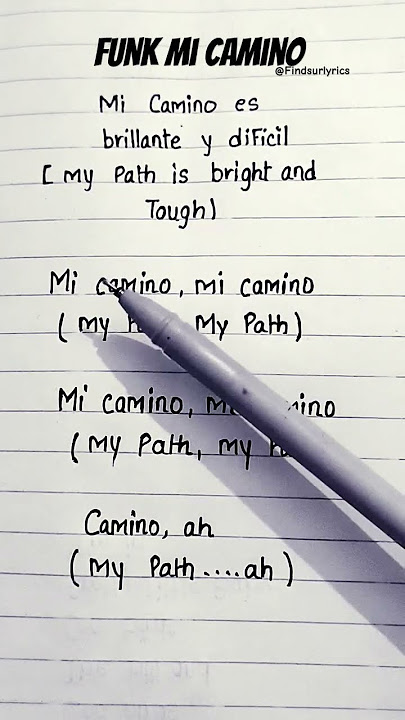 FUNK MI CAMINO
@Findsurlyrics
Mi Camino es
brillante y dificil
[ my Path is bright and
Tough)
Mi camino, mi camino
( my My Path)
Mi camino,
(my Path, my
Camino, ah
( My Path....ah )